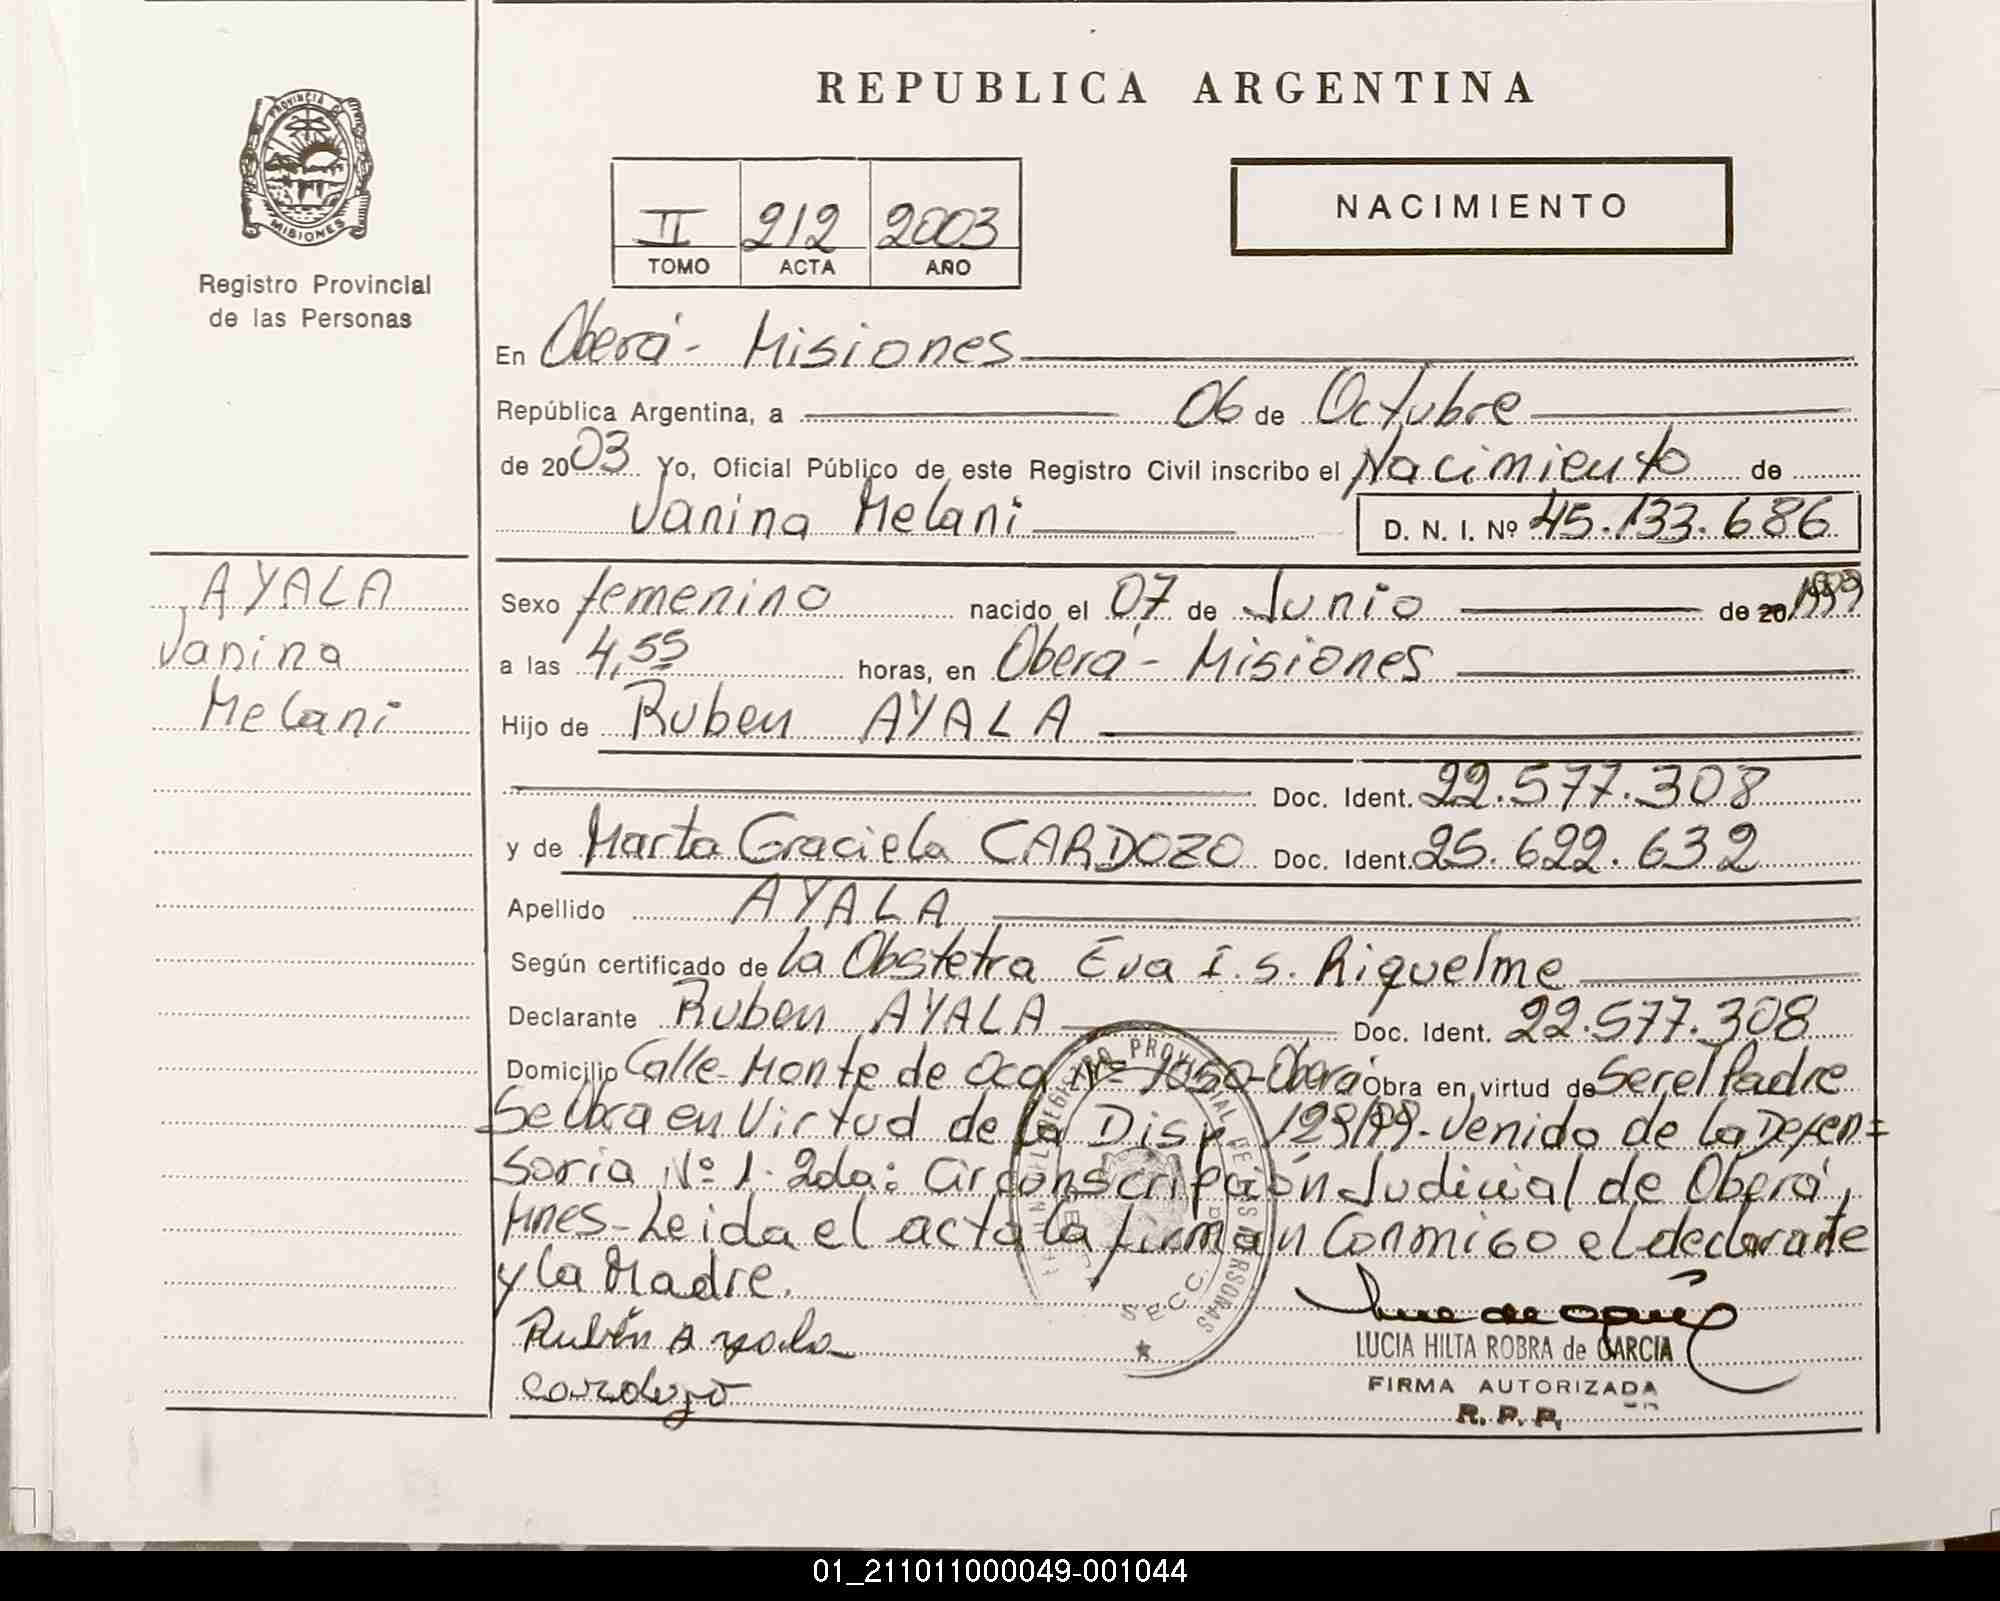 REPUBLICA ARGENTINA
PROVINCIA DE
MISIONES
Registro Provincial
de las Personas
II 212 2003
TOMO ACTA AÑO
NACIMIENTO
En Oberá - Misiones
República Argentina, a 06 de Octubre
de 2003 Yo, Oficial Público de este Registro Civil inscribo el Nacimiento de
Janina Melani D. N. I. Nº 45.133.686
AYALA
Janina
Melani
Sexo femenino nacido el 07 de Junio de 20 1999
a las 4,55 horas, en Oberá - Misiones
Hijo de Ruben AYALA
Doc. Ident. 22.577.308
y de Marta Graciela CARDOZO Doc. Ident. 25.622.632
Apellido AYALA
Según certificado de la Obstetra Eva I. S. Riquelme
Declarante Ruben AYALA Doc. Ident. 22.577.308
Domicilio Calle Monte de Oca Nº 1050 - Oberá Obra en virtud de Ser el Padre
Se Obra en Virtud de la Disp. 129/99 - Venido de la Defen=
soria Nº 1. 2da: Circonscripción Judicial de Oberá,
Mnes - Leida el acta la firman Conmigo el declarante
y la Madre.
Rubén Ayala
Cardozo
REGISTRO PROVINCIAL DE LAS PERSONAS
SECC.
LUCIA HILTA ROBRA de GARCIA
FIRMA AUTORIZADA
R. P. P.
01_211011000049-001044